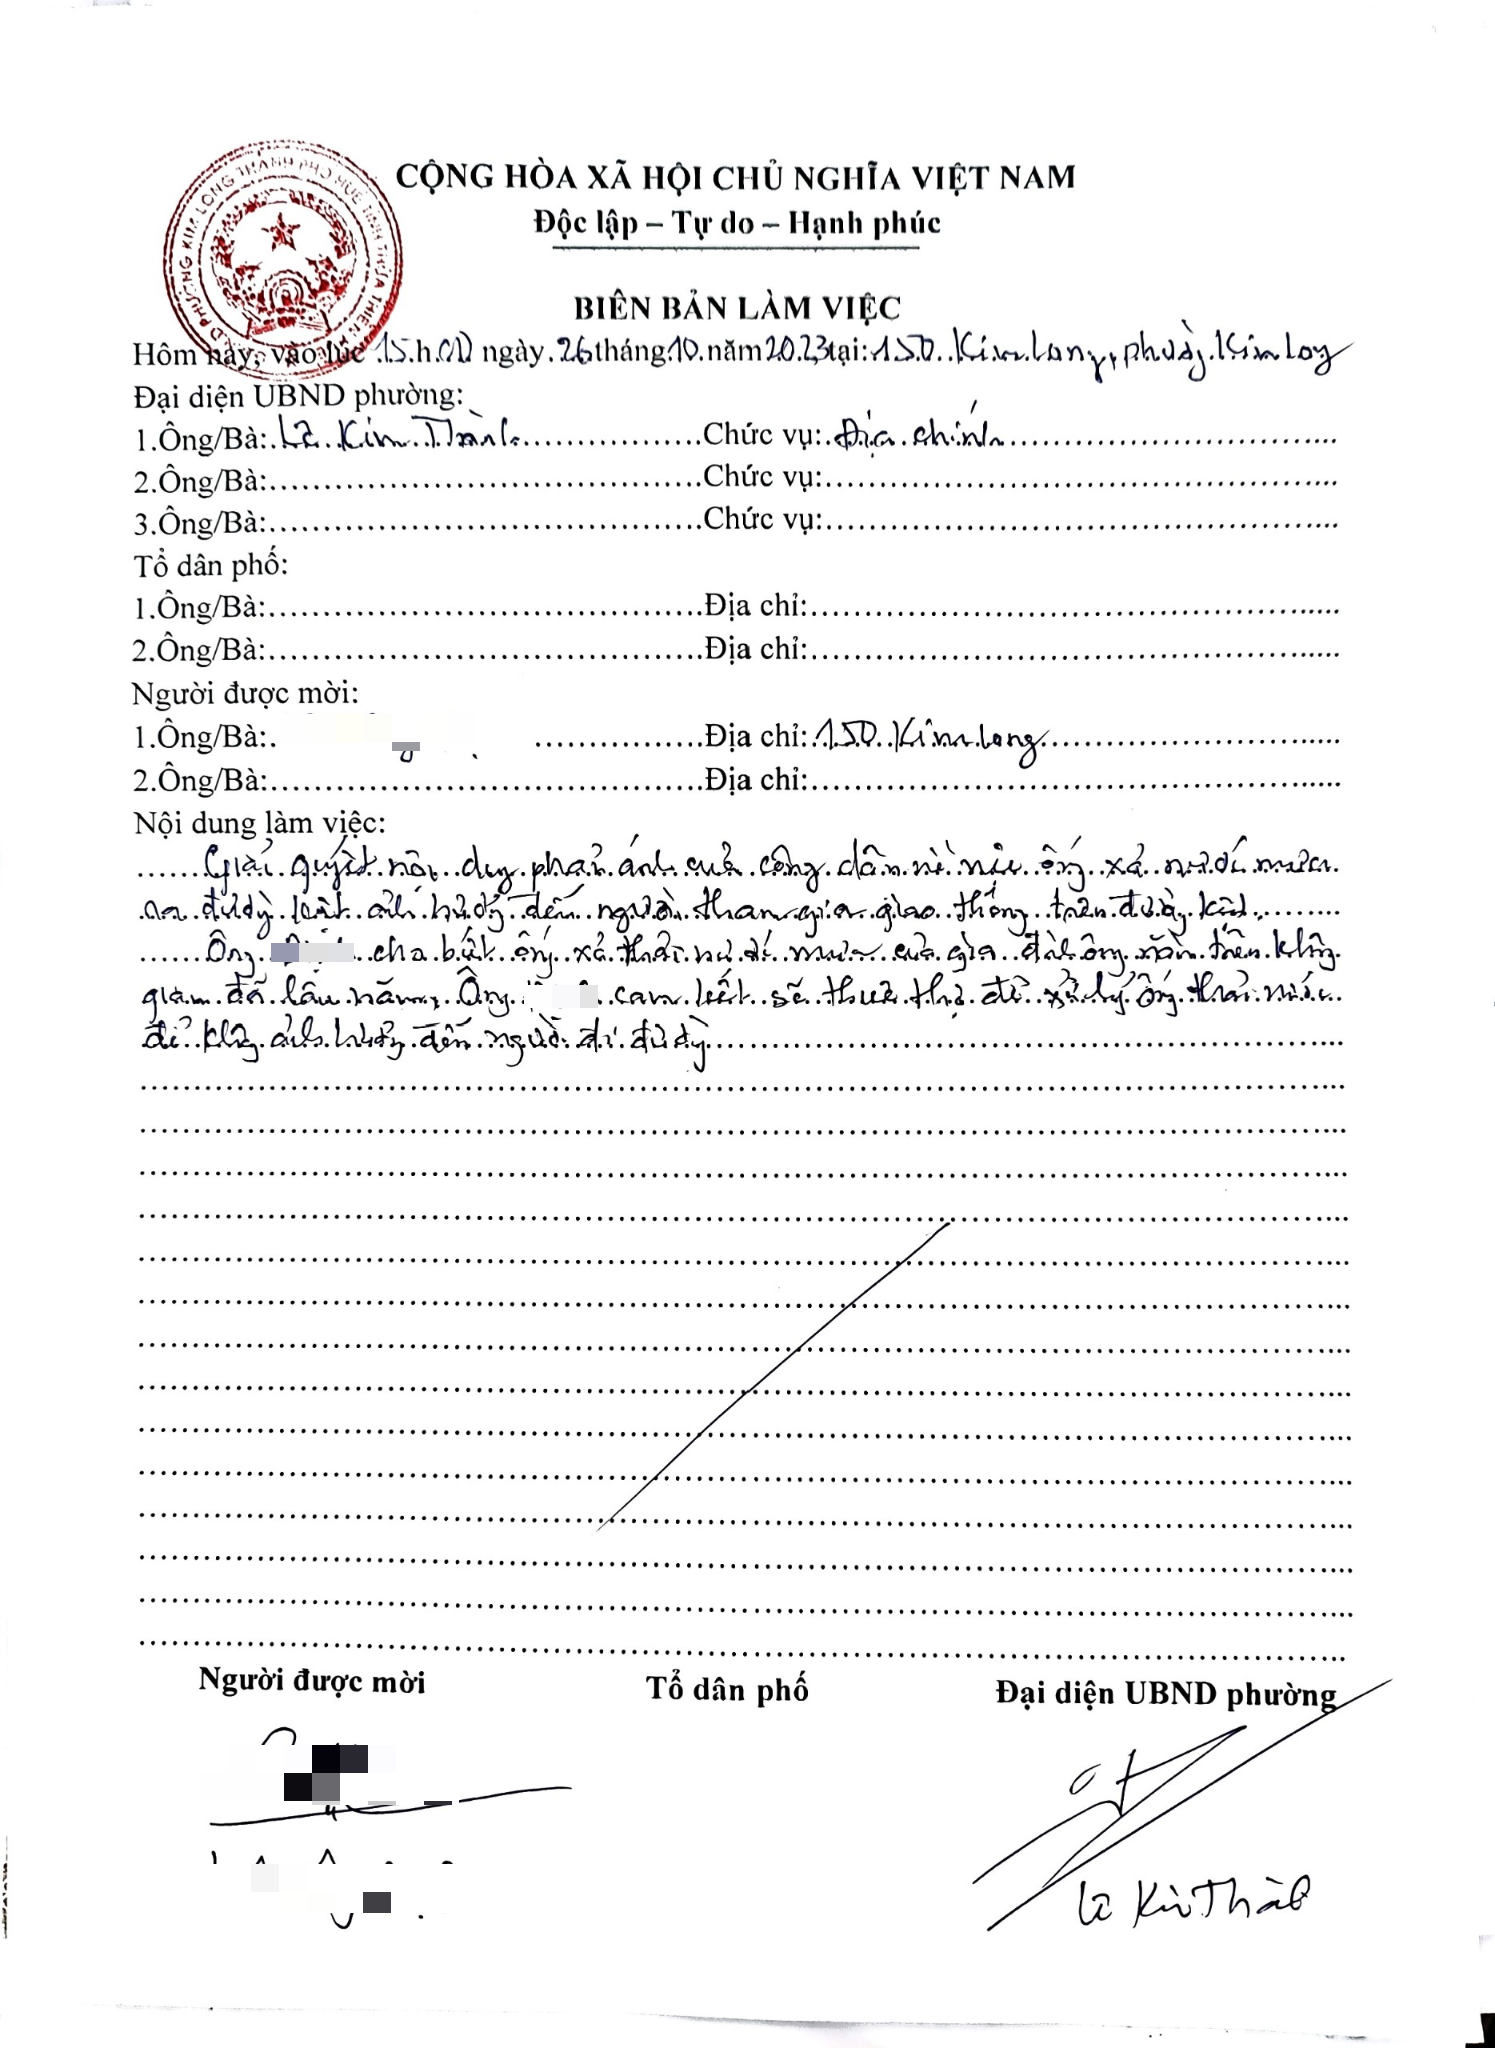 UBND PHƯỜNG KIM LONG THÀNH PHỐ HUẾ TỈNH THỪA THIÊN
CỘNG HÒA XÃ HỘI CHỦ NGHĨA VIỆT NAM
Độc lập – Tự do – Hạnh phúc
BIÊN BẢN LÀM VIỆC
Hôm nay, vào lúc 15.h.00 ngày.26 tháng 10.năm 2023 tại: 150 Kim Long, phường Kim Long
Đại diện UBND phường:
1.Ông/Bà: Lê Kim Thành Chức vụ: Địa chính
2.Ông/Bà: Chức vụ:
3.Ông/Bà: Chức vụ:
Tổ dân phố:
1.Ông/Bà: Địa chỉ:
2.Ông/Bà: Địa chỉ:
Người được mời:
1.Ông/Bà: Địa chỉ: 150 Kim Long
2.Ông/Bà: Địa chỉ:
Nội dung làm việc:
Giải quyết nội dung phản ánh của công dân về việc ống xả nước mưa
ra đường kiệt ảnh hưởng đến người tham gia giao thông trên đường kiệt.
Ông cho biết ống xả thải nước mưa của gia đình ông nằm trên không
gian đã lâu năm, Ông cam kết sẽ thuê thợ để xử lý ống thải nước
để không ảnh hưởng đến người đi đường
Người được mời Tổ dân phố Đại diện UBND phường
Lê Kim Thành